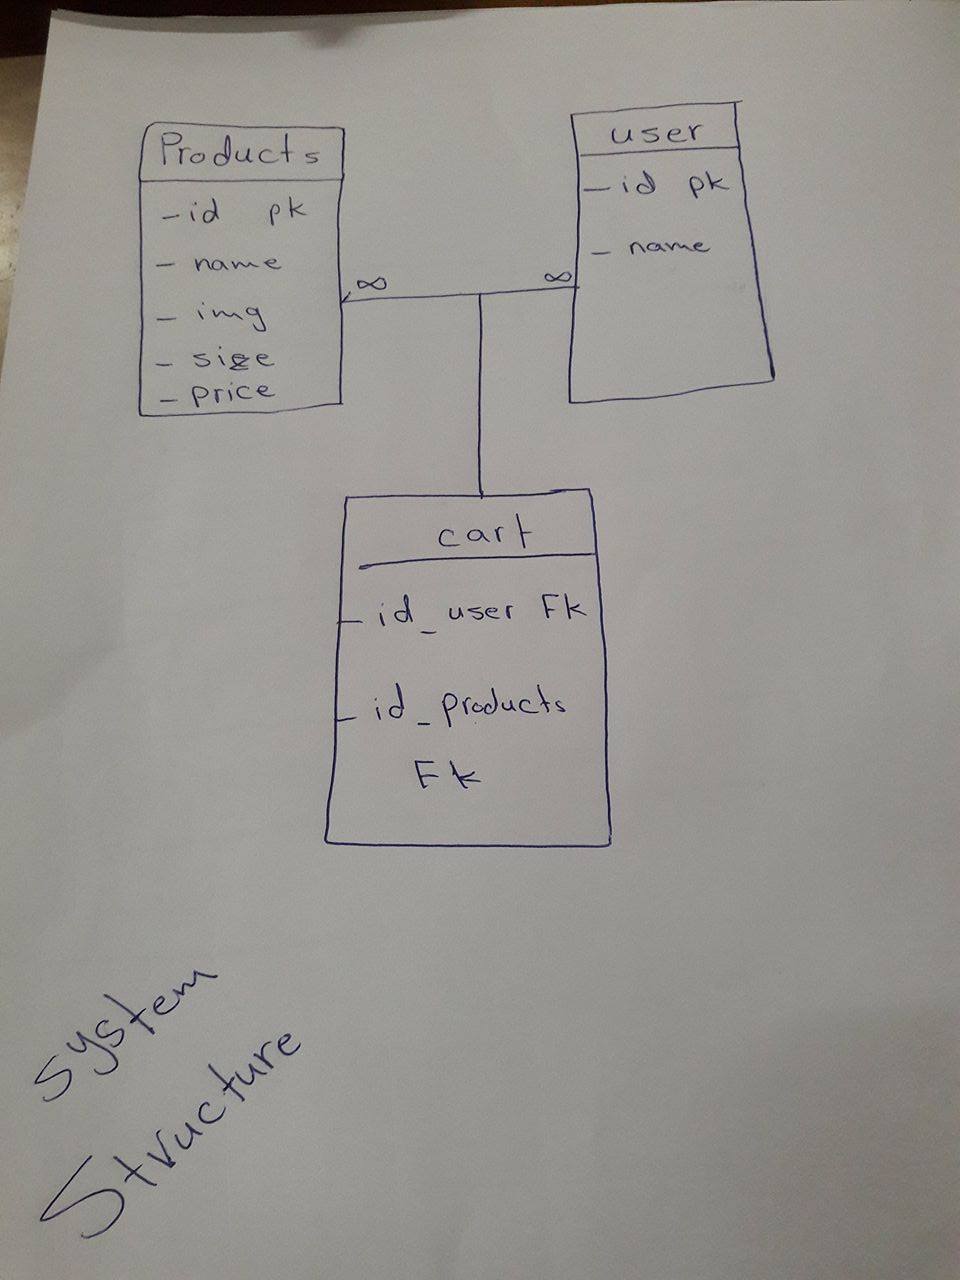 Products
- id pk
- name
- img
- size
- price
user
- id pk
- name
∞ ∞
cart
- id_user Fk
- id_products
Fk
system
Structure